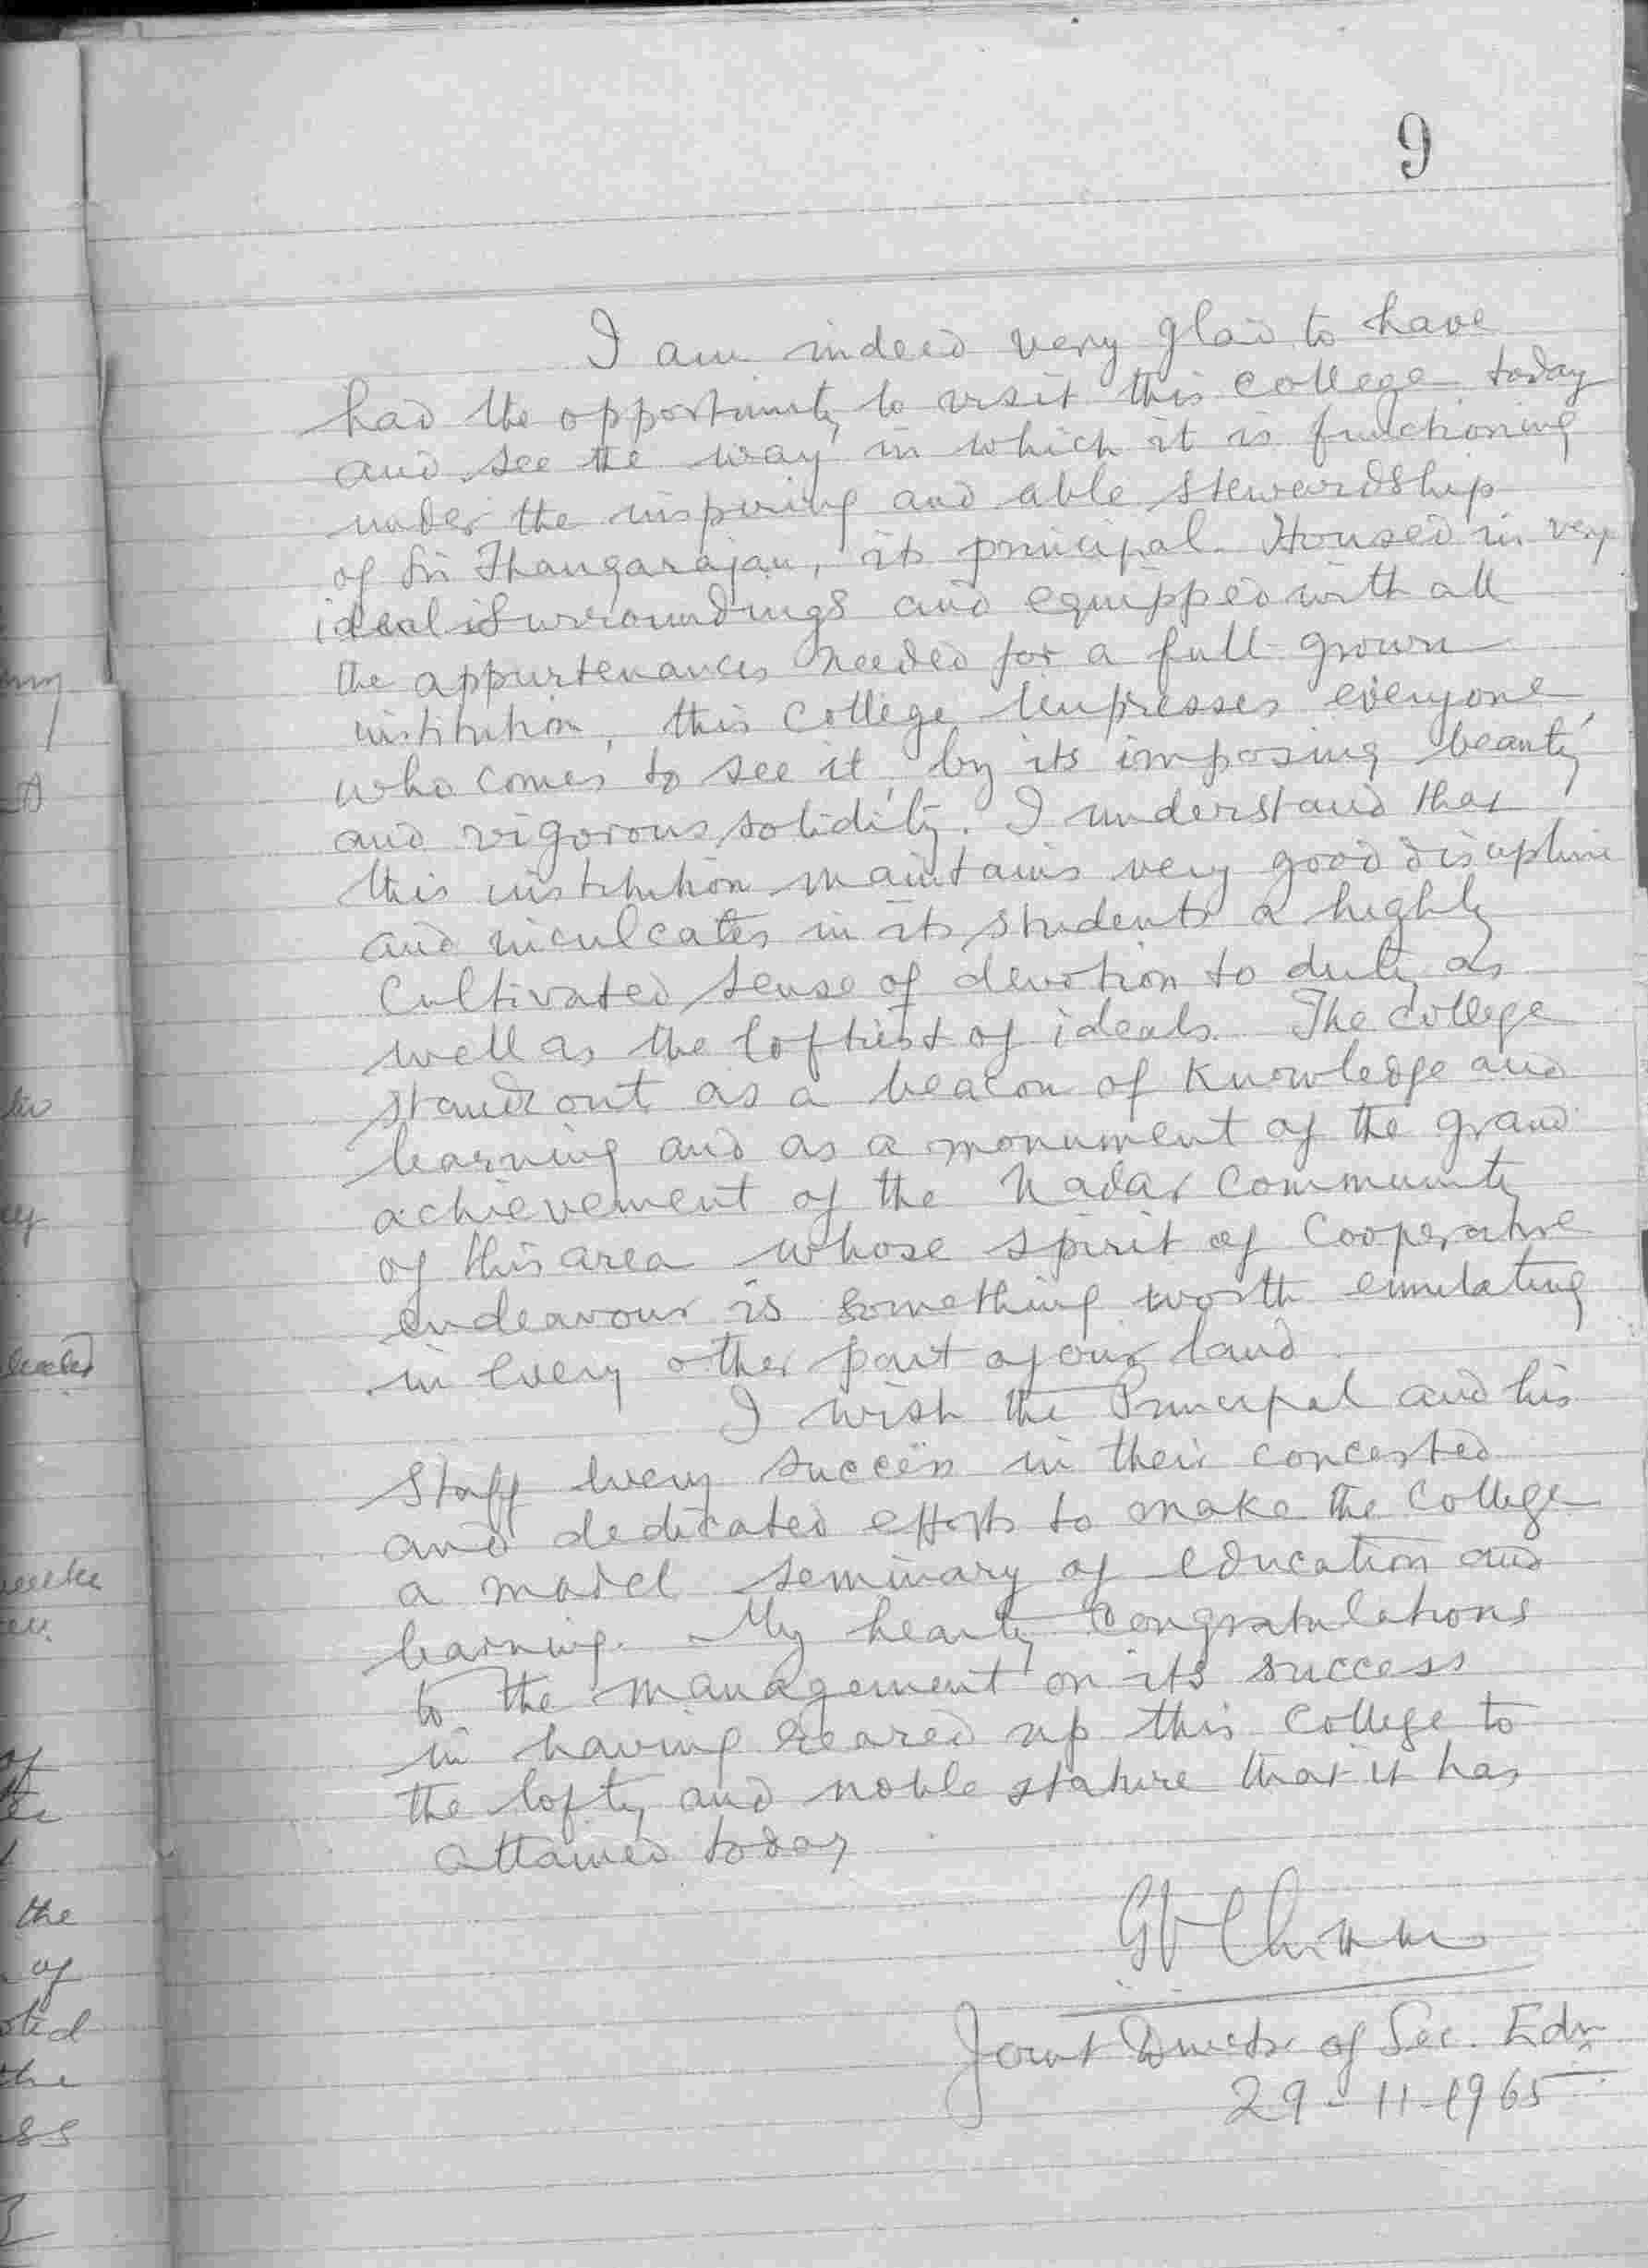 9
I am indeed very glad to have
had the opportunity to visit this college today
and see the way in which it is functioning
under the inspiring and able stewardship
of Sri Thangarajan, its principal. Housed in very
ideal surroundings and equipped with all
the appurtenances needed for a full-grown
institution, this college impresses everyone,
who comes to see it, by its imposing beauty
and vigorous solidity. I understand that
this institution maintains very good discipline
and inculcates in its students a highly
cultivated sense of devotion to duty as
well as the loftiest of ideals. The college
stands out as a beacon of knowledge and
learning and as a monument of the grand
achievement of the Nadar community
of this area whose spirit of cooperative
endeavour is something worth emulating
in every other part of our land.
I wish the Principal and his
staff every success in their concerted
and dedicated efforts to make the College
a model seminary of education and
learning. My hearty congratulations
to the management on its success
in having reared up this college to
the lofty and noble stature that it has
attained today.
Joint Director of Sec. Edn
29-11-1965
the
of
the